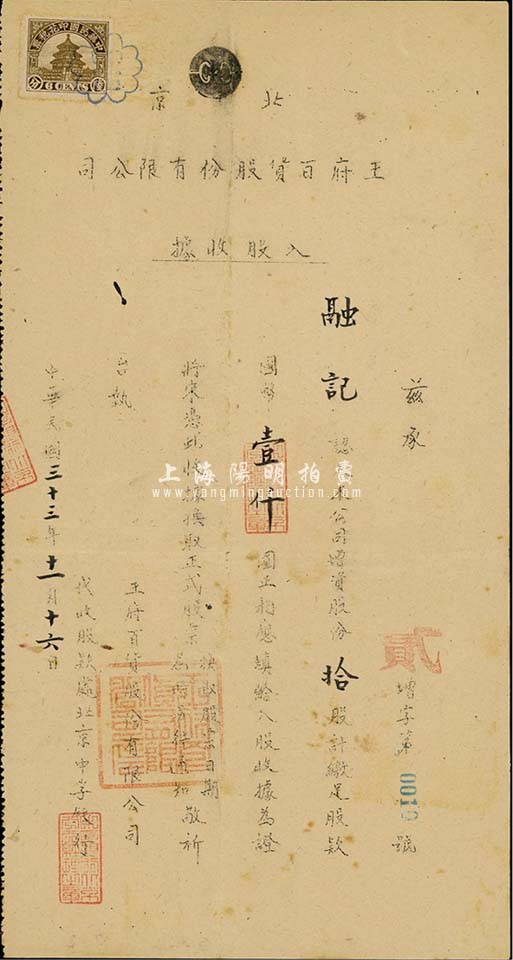 中華民國印花稅票
6 CENTS
分
北京
王府百貨股份有限公司
入股收據
增字第0019號
茲承
融記認本公司增資股份拾股計繳足股款
國幣壹仟圓正相應填給入股收據為證
將來憑此收據換取正式股票
換取股票日期
為時另行通知敬祈
台執
王府百貨股份有限公司
代收股款處北京中孚銀行
中華民國三十三年十一月十六日
上海陽明拍賣
www.yangmingauction.com